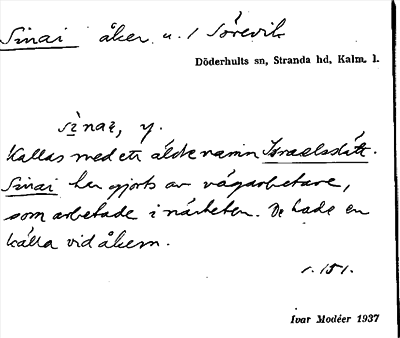 Sinai åker u. / Sörevik
Döderhults sn, Stranda hd, Kalm. l.
sìnai, y.
Kallas med ett äldre namn Israelsslätt.
Sinai har gjorts av vägarbetare,
som arbetade i närheten. De hade en
källa vid åkern.
1.151.
Ivar Modéer 1937